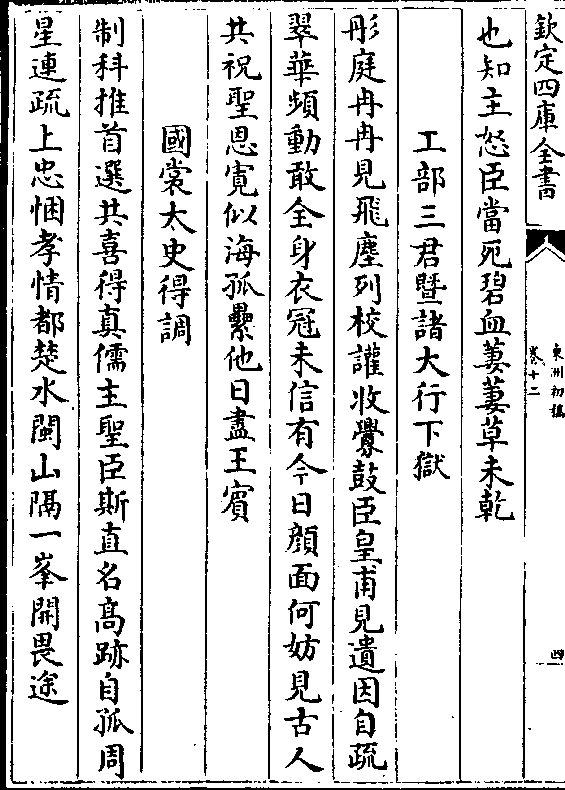 欽定四庫全書
東洲初稿
卷十二
四
也知主怒臣當死碧血萋萋草未乾
工部三君暨諸大行下獄
彤庭冉冉見飛塵列校讙收釁鼓臣皇甫見遺因自疏
翠華頻動敢全身衣冠未信有今日顔面何妨見古人
共祝聖恩寛似海孤纍他日盡王賓
國裳太史得調
制科推首選共喜得真儒主聖臣斯直名髙跡自孤周
星連疏上忠悃孝情都楚水閩山隔一峯開畏途